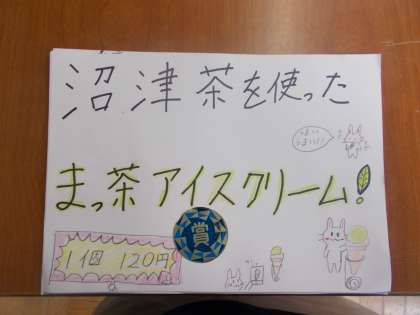 沼津茶を使った
まっ茶アイスクリーム!
賞
1個 120円